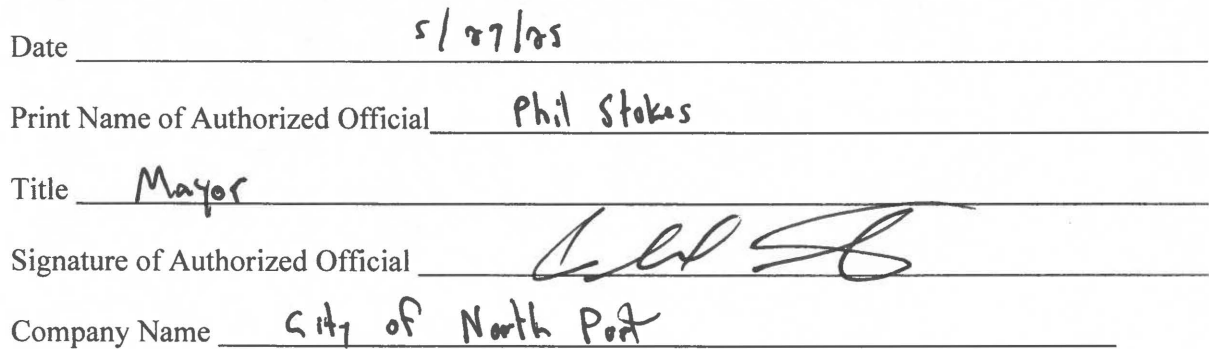 Date 5/27/25
Print Name of Authorized Official Phil Stokes
Title Mayor
Signature of Authorized Official
Company Name City of North Port